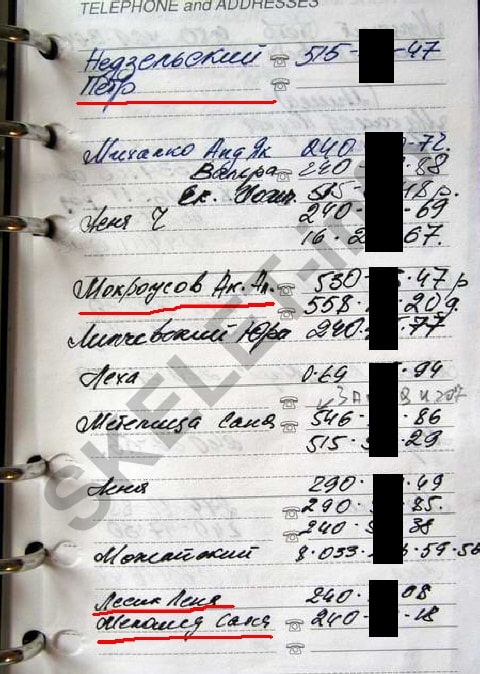 TELEPHONE and ADDRESSES
Недзельский 515- -47
Петр
Михалко Анд Як 240 -72.
Валюра 240 -88
515 18 р.
Женя Ч 240 -69
16. 2 67.
Мокроусов Ак. Ан. 530. .47 р
558. .20 д.
Липчевский Юра 240. .77
Леха 0-69 .94
Метелица Саня 546 - . 86
515. 9 . 29
Леня 290. .49
290 . 85.
240. 38
Можайский 8.033. .59.56
Лесик Леня 240. 08
Саня 240 -18
SKELET-info